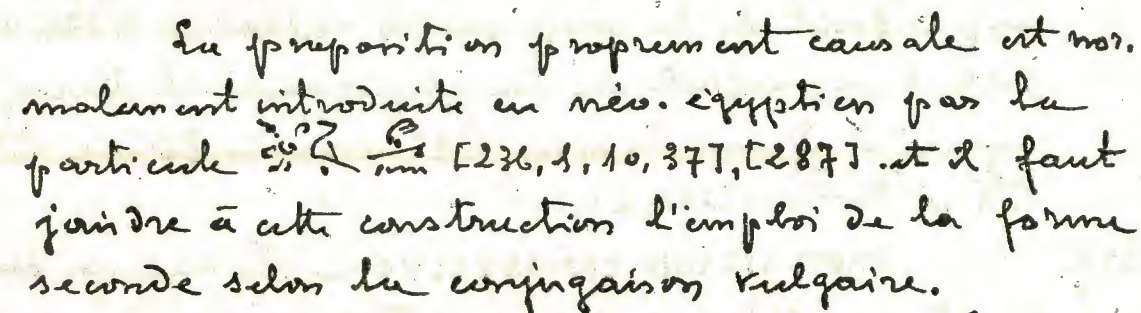 La preposition proprement causale est nor-
malement introduite en néo-égyptien par la
particule [236, 1, 10, 37], [287]. et il faut
joindre à cette construction l'emploi de la forme
seconde selon la conjugaison vulgaire.